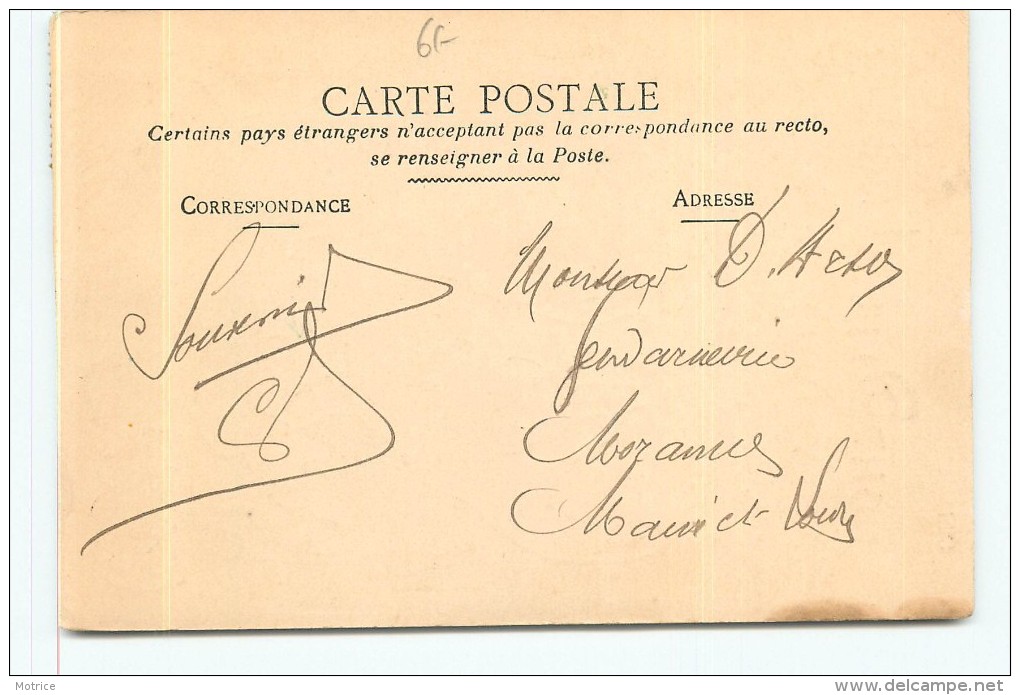 6f-
CARTE POSTALE
Certains pays étrangers n'acceptant pas la correspondance au recto,
se renseigner à la Poste.
CORRESPONDANCE
ADRESSE
Souvenir
Monsieur D.
Gendarmerie
Morannes
Maine et Loire
Motrice
http://www.delcampe.net